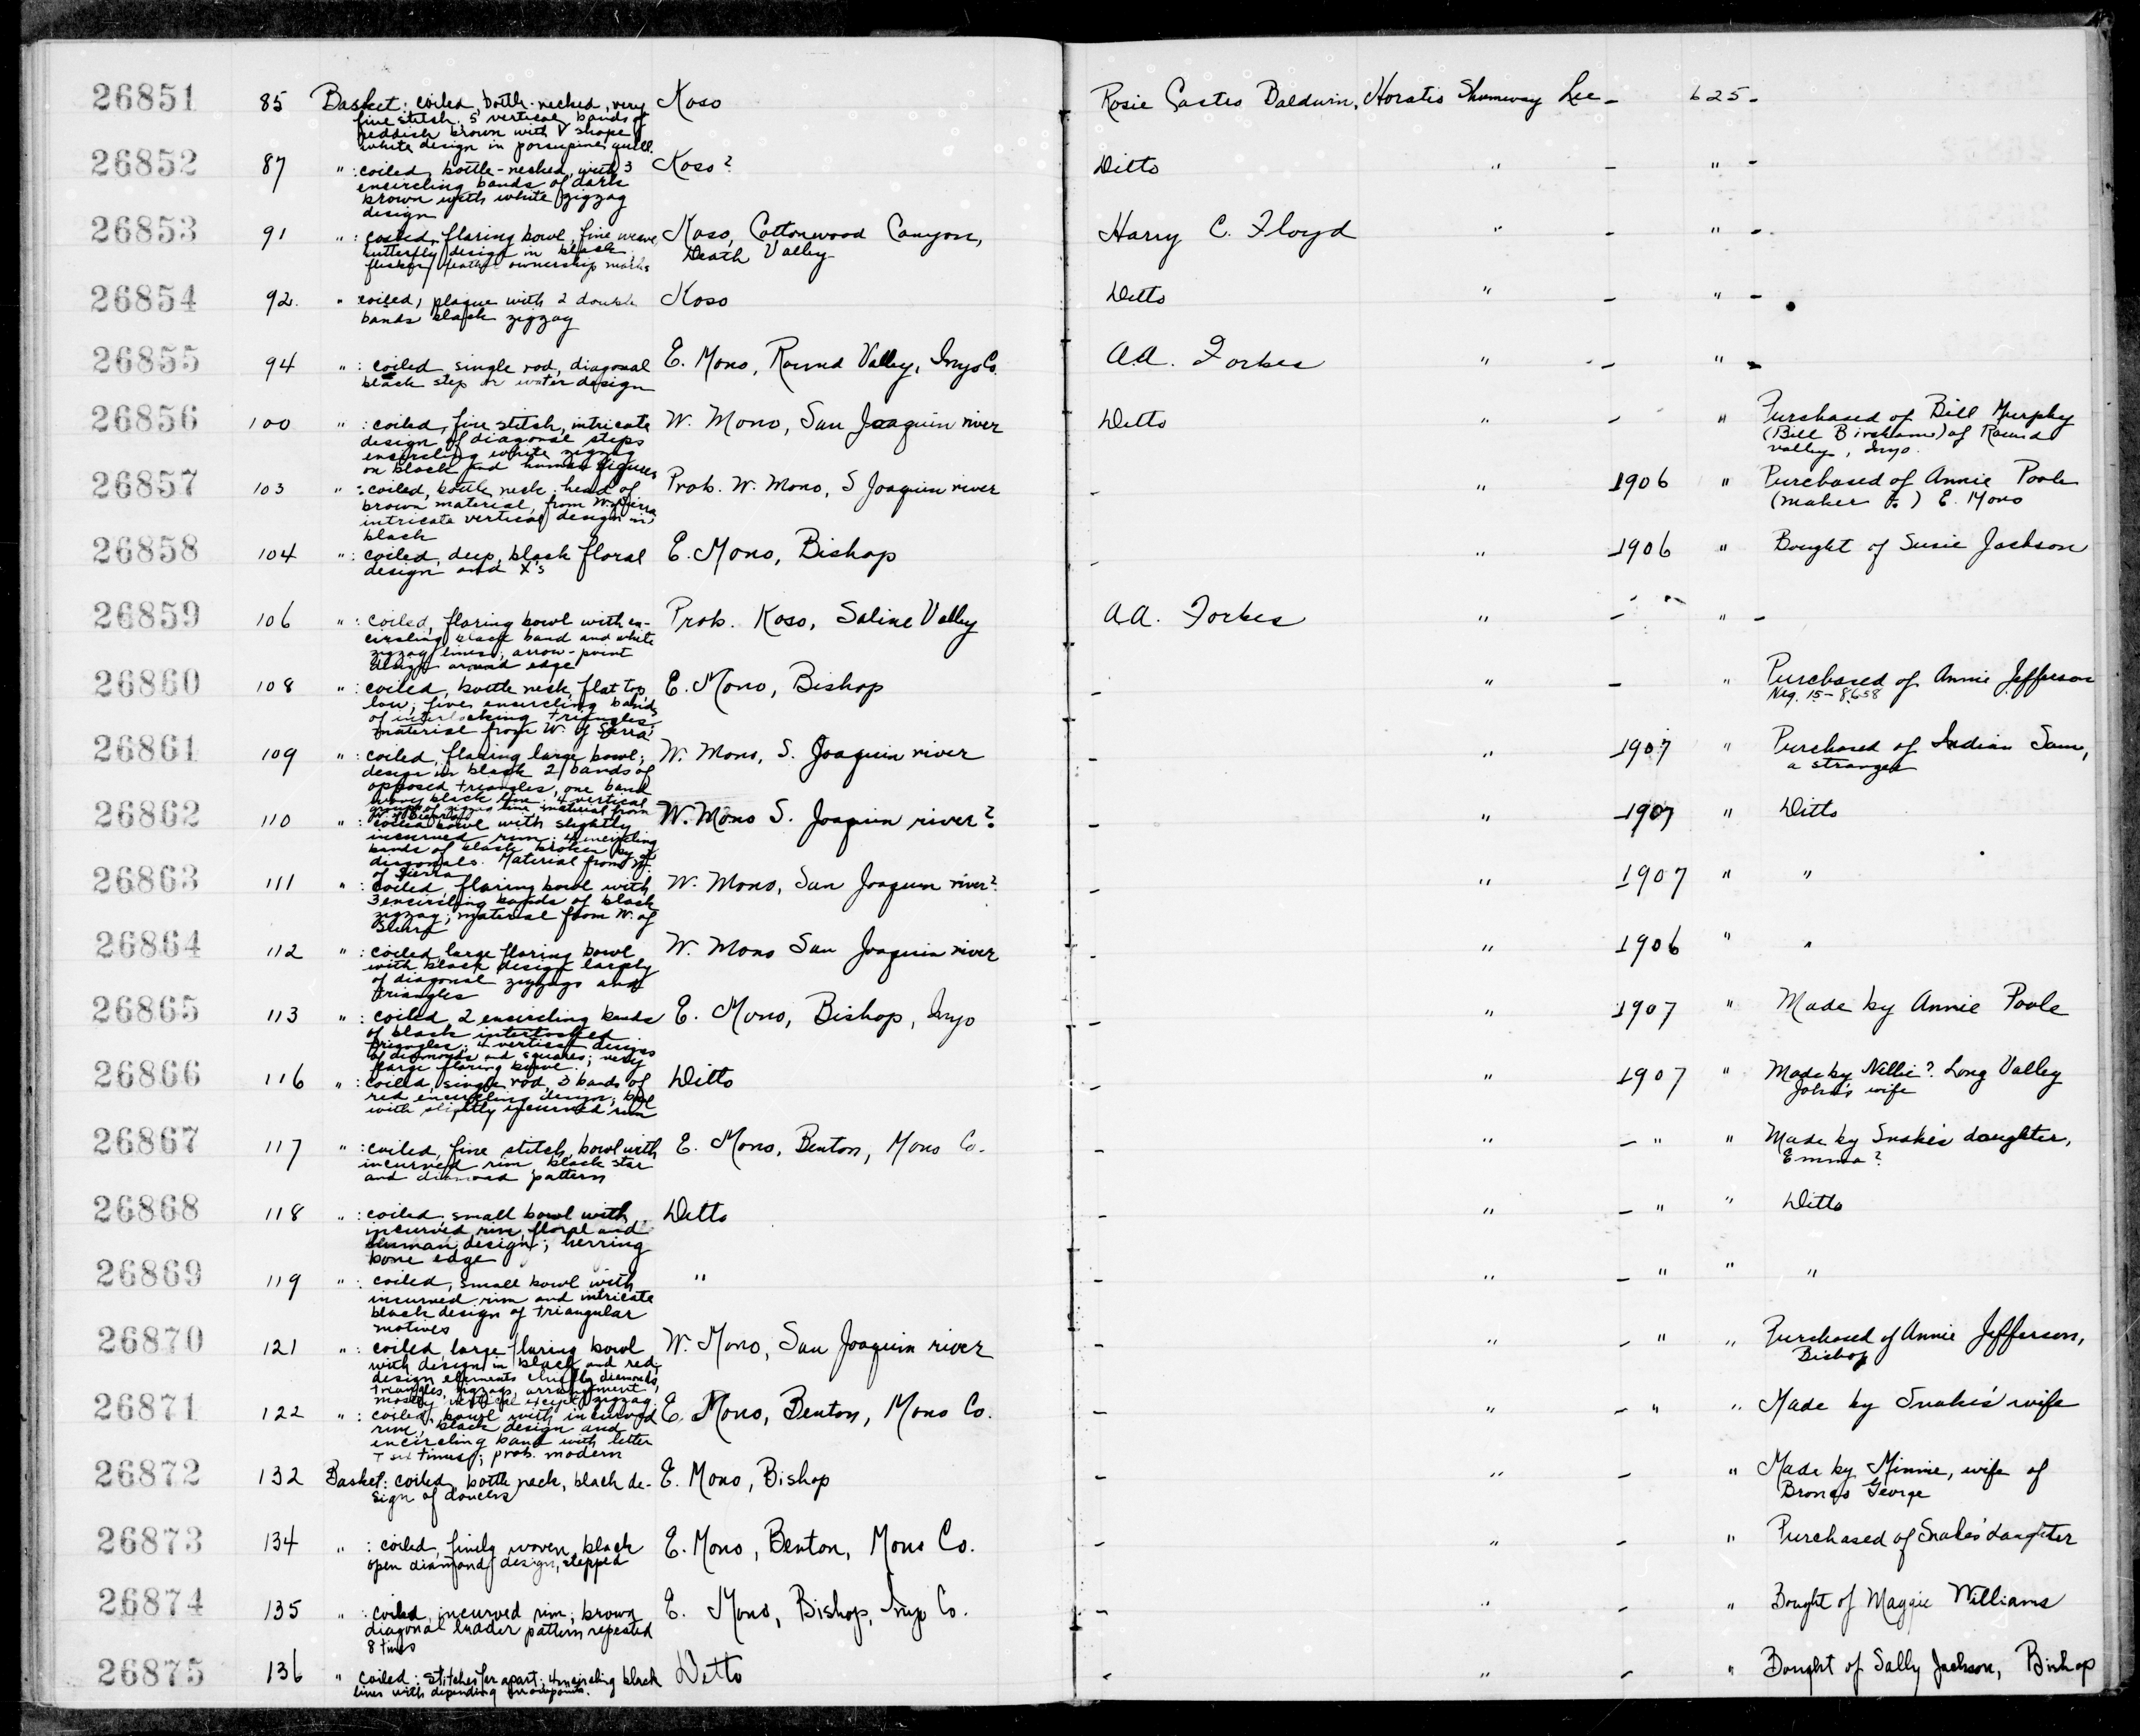 26851 85 Basket: coiled, bottle-necked, very Koso Rosie Castro Baldwin, Horatio Shumway Lee - 625 -
fine stitch. 5 vertical bands of
reddish brown with V shape
white design in porcupine quill.
26852 87 " : coiled, bottle-necked, with 3 Koso? Ditto " - " -
encircling bands of dark
brown with white zigzag
design
26853 91 " : coiled, flaring bowl, fine weave, Koso, Cottonwood Canyon, Harry C. Floyd " - " -
butterfly design in black, Death Valley
flicker feather ownership marks
26854 92. " coiled, plaque with 2 double Koso Ditto " - " -
bands black zigzag
26855 94 " : coiled, single rod, diagonal E. Mono, Round Valley, Inyo Co. A.A. Forbes " - " -
black step or water design
26856 100 " : coiled, fine stitch, intricate W. Mono, San Joaquin river Ditto " - " Purchased of Bill Murphy
design of diagonal steps (Bill Bircham) of Round
encircling white zigzag valley, Inyo.
on black and human figures
26857 103 " : coiled, bottle neck, head of Prob. W. Mono, S Joaquin river - " 1906 " Purchased of Annie Poole
brown material, from W. of Sierra (maker ?) E. Mono
intricate vertical design in
black
26858 104 " : coiled, deep, black floral E. Mono, Bishop - " 1906 " Bought of Susie Jackson
design and X's
26859 106 " : coiled, flaring bowl with en- Prob. Koso, Saline Valley A.A. Forbes " - " -
circling black band and white
zigzag lines; arrow-point
design around edge
26860 108 " : coiled, bottle neck, flat top, E. Mono, Bishop - " - " Purchased of Annie Jefferson
low; five encircling bands Neg. 15-8658
of interlocking triangles;
material from W. of Sierra
26861 109 " : coiled, flaring large bowl; W. Mono, S. Joaquin river - " 1907 " Purchased of Indian Sam,
design in black 2 bands of a stranger
opposed triangles, one band
wavy black line; 4 vertical
groups of zigzag line, material from
26862 110 " : coiled bowl with slightly W. Mono S. Joaquin river? - " 1907 " Ditto
incurved rim; 4 encircling
bands of black broken by
diagonals. Material from W.
of Sierra
26863 111 " : coiled, flaring bowl with W. Mono, San Joaquin river? - " 1907 " "
3 encircling bands of black
zigzag; material from W. of
Sierra
26864 112 " : coiled, large flaring bowl W. Mono San Joaquin river - " 1906 " "
with black design largely
of diagonal zigzags and
triangles
26865 113 " : coiled, 2 encircling bands E. Mono, Bishop, Inyo - " 1907 " Made by Annie Poole
of black interlocked
triangles; 4 vertical designs
of diamonds and squares; very
large flaring bowl.
26866 116 " : coiled, single rod, 3 bands of Ditto - " 1907 " Made by Nellie? Long Valley
red encircling design; bowl John's wife
with slightly incurved rim
26867 117 " : coiled, fine stitch, bowl with E. Mono, Benton, Mono Co. - " - " " Made by Snake's daughter,
incurved rim, black star Emma?
and diamond pattern
26868 118 " : coiled, small bowl with Ditto - " - " " Ditto
incurved rim, floral and
human design; herring
bone edge
26869 119 " : coiled, small bowl with " - " - " " "
incurved rim and intricate
black design of triangular
motives
26870 121 " : coiled, large flaring bowl W. Mono, San Joaquin river - " - " " Purchased of Annie Jefferson,
with design in black and red; Bishop
design elements chiefly diamonds,
triangles, zigzags, arrangement
mostly vertical except zigzag
26871 122 " : coiled, bowl with incurved E. Mono, Benton, Mono Co. - " - " " Made by Snake's wife
rim, black design and
encircling band with letter
T six times; prob. modern
26872 132 Basket: coiled, bottle neck, black de- E. Mono, Bishop - " - " Made by Minnie, wife of
sign of dancers Bronco George
26873 134 " : coiled, finely woven, black E. Mono, Benton, Mono Co. - " - " Purchased of Snake's daughter
open diamond design, stepped
26874 135 " : coiled, incurved rim; brown E. Mono, Bishop, Inyo Co. - " - " Bought of Maggie Williams
diagonal ladder pattern repeated
8 times
26875 136 " coiled; stitches far apart; 4 encircling black Ditto - " - " Bought of Sally Jackson, Bishop
lines with depending arrowpoints.